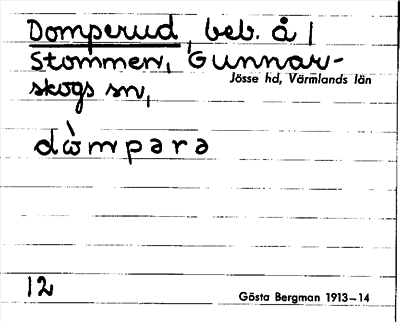 Domperud, beb. å /
Stommen, Gunnar-
Jösse hd, Värmlands län
skogs sn,
dòmpərə
12
Gösta Bergman 1913–14